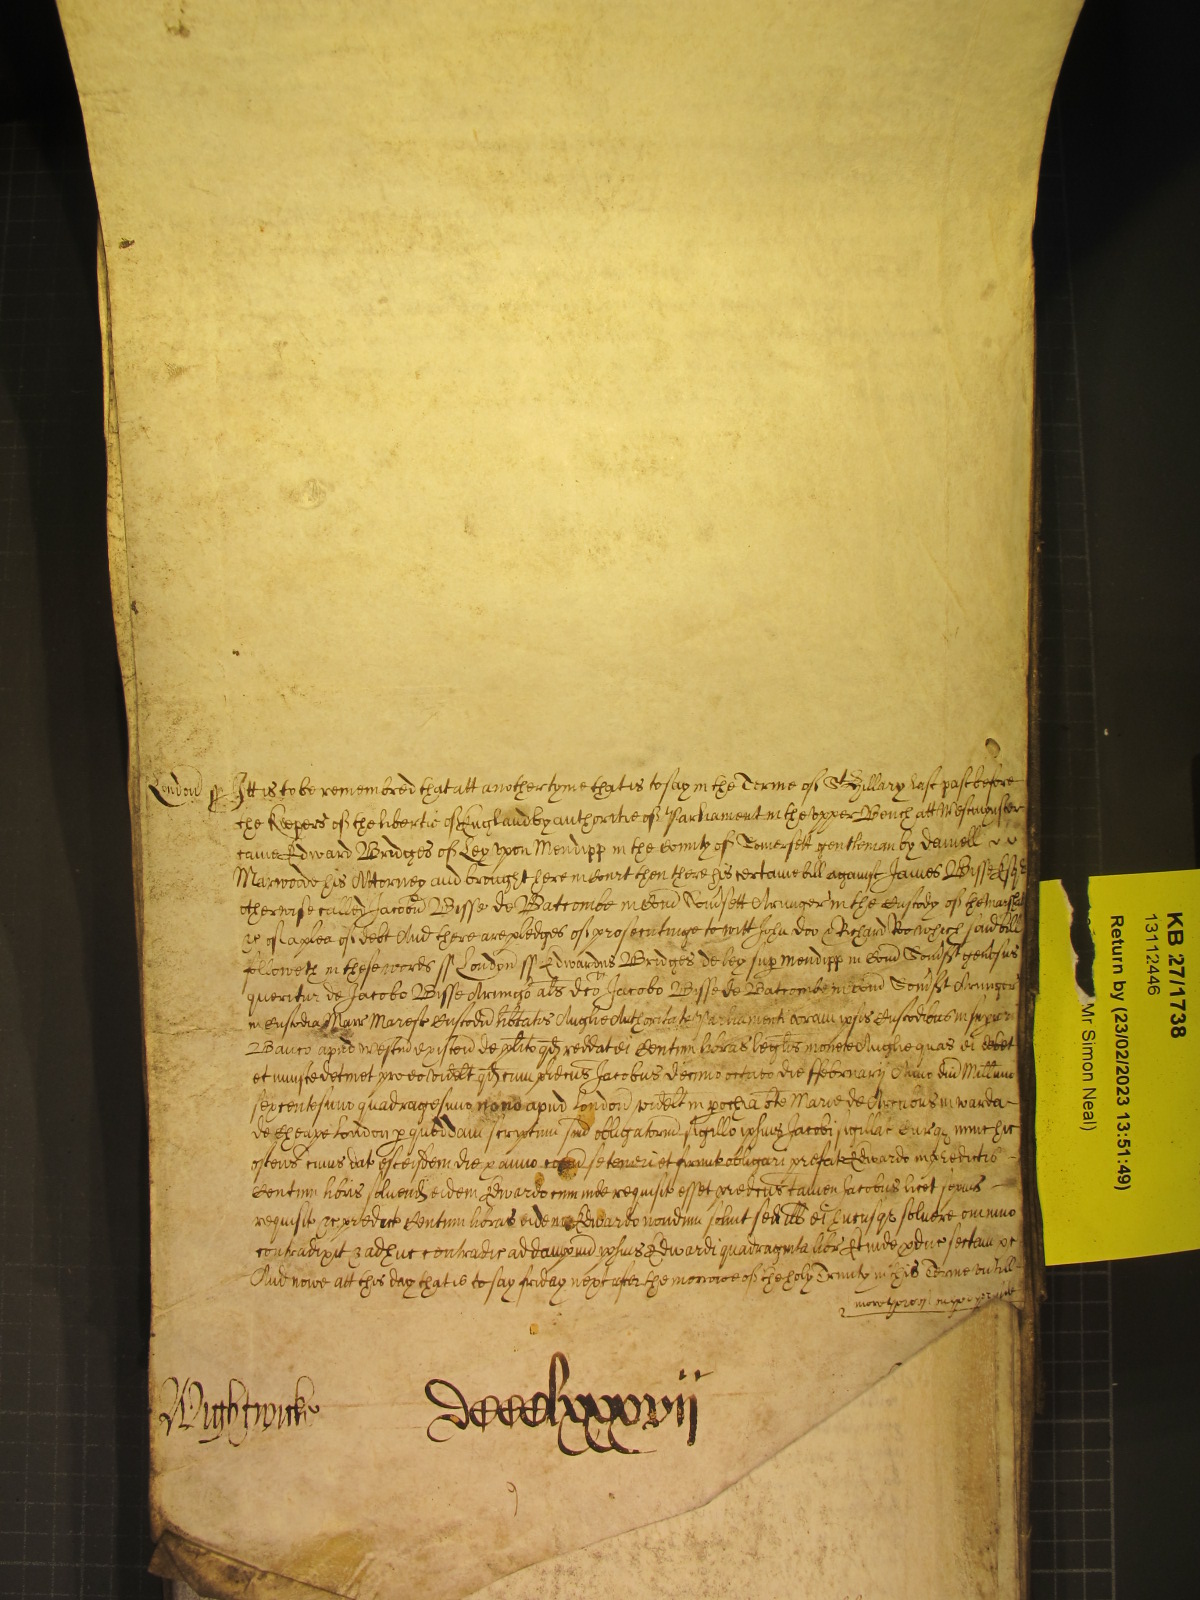 London ss Itt is to be remembred that att another tyme that is to say in the Terme of St Hillary last past before
the Keepers of the libertie of England by authoritie of Parliament in the upper Bench att Westminster
came Edward Bridges of Ley upon Mendipp in the County of Somersett gentleman by Daniell
Marwoode his Attorney and brought here in Court then there his certaine bill against James Bisse Esqr
otherwise called Jacobus Bisse de Batcombe in Com Somsett Armiger in the Custody of the Marshall
&c of a plea of debt And there are pledges of prosecutinge to witt John Doo & Richard Roo which said bill
followeth in these words ss London ss Edwardus Bridges de ley sup mendipp in Com Somst generosus
queritur de Jacobo Bisse Armigo als dco Jacobo Bisse de Batcombe in Com Somst Armiger
in Custodia Marr Maresc Custod libtatis Anglie Authoritate Parliamenti coram ipsis Custodibus in supiori
Banco apud Westm existen de plito qd reddat ei Centum libras legalis monete Anglie quas ei debet
et iniuste detinet pro eo videlt qd cum predcus Jacobus decimo octavo die ffebruarij Anno dni Millimo
sexcentesimo quadragesimo nono apud London videlt in pochia bte Marie de Arcubus in warda
de Cheape London p quoddam scriptum suu obligatorium sigillo ipsius Jacobi sigillat Curq nunc hic
ostens cuius dat est eisdem die & anno cogn se teneri et firmit obligari prefat Edwardo in predictis
Centum libris solvend eidem Edwardo cum inde requisit esset predcus tamen Jacobus licet sepius
requisit &c predict Centum libras eidem Edwardo nondum solvit sed ill ei hucusq solvere omnino
contradixit & adhuc contradic ad dampnu ipsius Edwardi quadraginta libr Et inde pduc sectam &c
And nowe att this day that is to say friday next after the morrow of the holy Trinity in this Terme untill
Wightwicke
dcccclxxxvij
KB 27/1738
13112446
Return by (23/02/2023 13:51:49)
Mr Simon Neal)